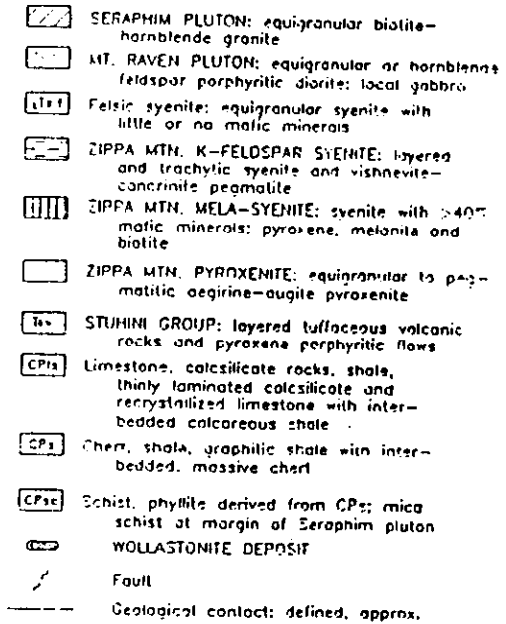 SERAPHIM PLUTON: equigranular biotite-
hornblende granite
MT. RAVEN PLUTON: equigranular or hornblende
feldspar porphyritic diorite; local gabbro
Felsic syenite: equigranular syenite with
little or no mafic minerals
ZIPPA MTN. K-FELDSPAR SYENITE: layered
and trachytic syenite and vishnevite-
cancrinite pegmatite
ZIPPA MTN. MELA-SYENITE: syenite with >40%
mafic minerals: pyroxene, melanite and
biotite
ZIPPA MTN. PYROXENITE: equigranular to peg-
matitic aegirine-augite pyroxenite
STUHINI GROUP: layered tuffaceous volcanic
rocks and pyroxene porphyritic flows
CPls Limestone, calcsilicate rocks, shale,
thinly laminated calcsilicate and
recrystallized limestone with inter-
bedded calcareous shale
CPs Chert, shale, graphitic shale with inter-
bedded, massive chert
CPsc Schist, phyllite derived from CPs; mica
schist at margin of Seraphim pluton
WOLLASTONITE DEPOSIT
Fault
Geological contact: defined, approx,